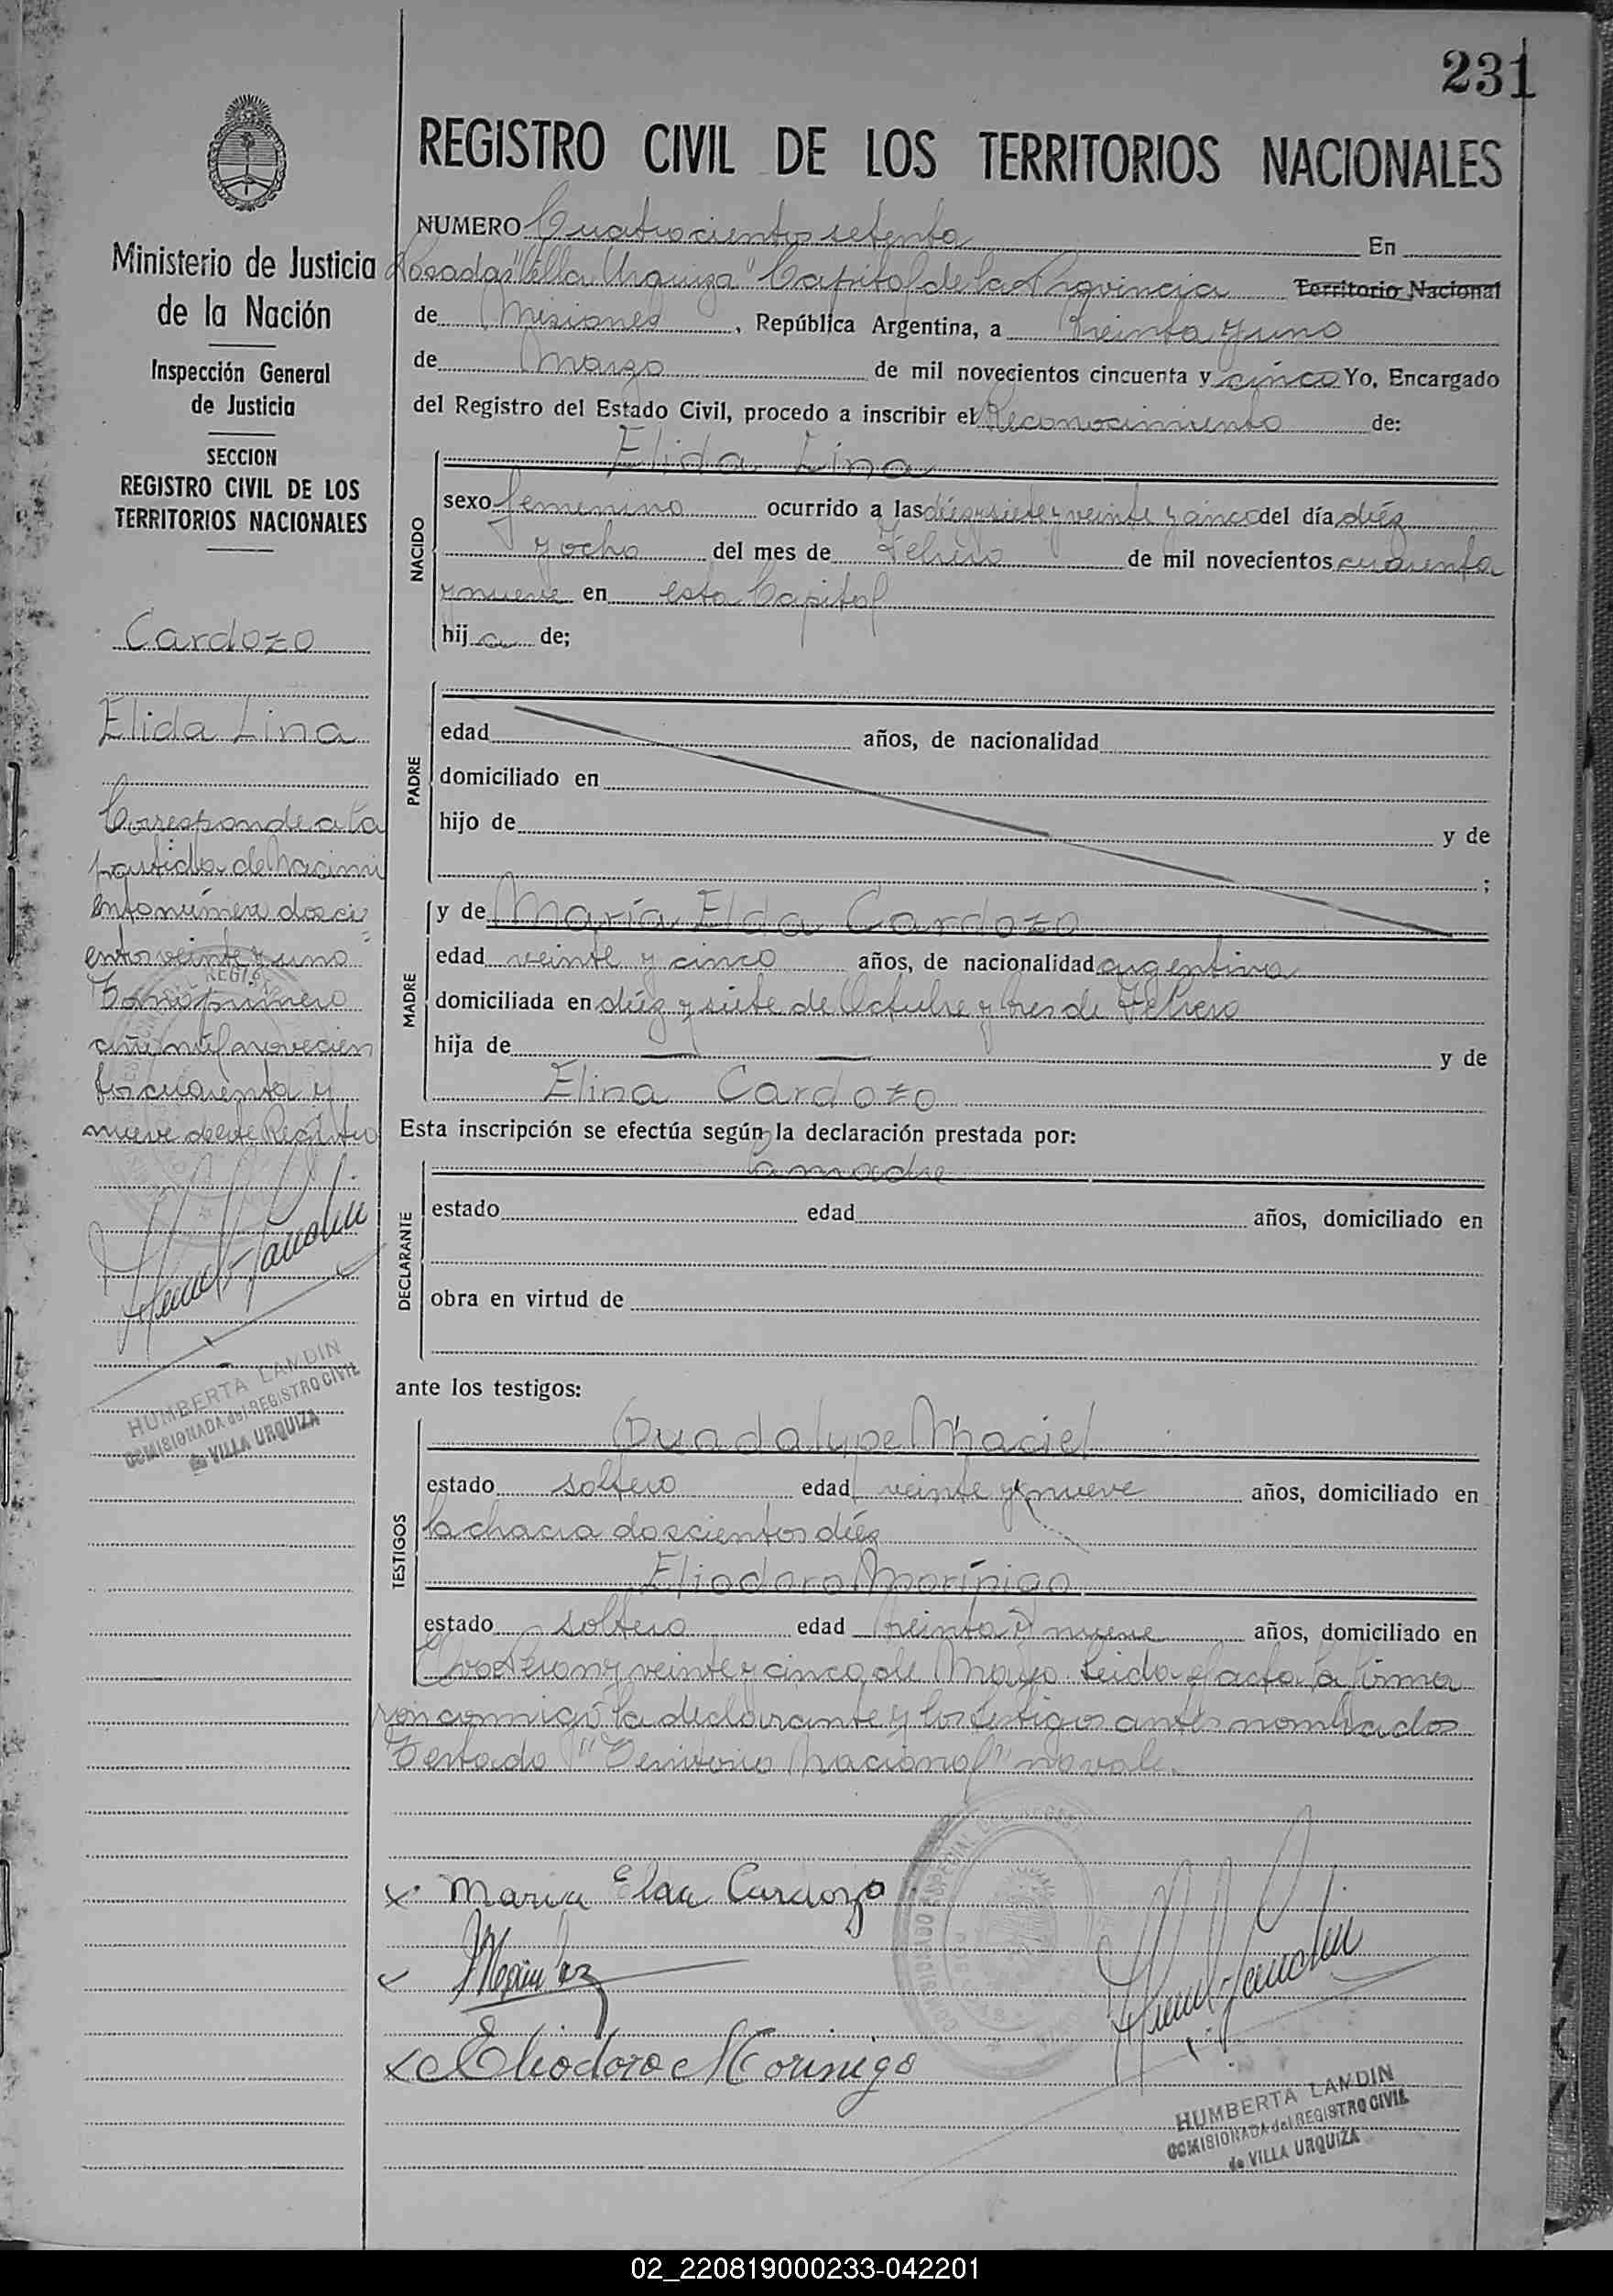 231
REGISTRO CIVIL DE LOS TERRITORIOS NACIONALES
Ministerio de Justicia
de la Nación
Inspección General
de Justicia
SECCION
REGISTRO CIVIL DE LOS
TERRITORIOS NACIONALES
Cardozo
Elida Lina
Corresponde a la
partida de nacimi
ento número dosci
entos veinte y uno
Tomo primero
año mil novecien
tos cuarenta y
nueve de este Registro
HUMBERTA LANDIN
COMISIONADA del REGISTRO CIVIL
de VILLA URQUIZA
NUMERO Cuatrocientos setenta En
Posadas "Villa Urquiza" Capital de la Provincia Territorio Nacional
de Misiones, República Argentina, a treinta y uno
de marzo de mil novecientos cincuenta y cinco Yo, Encargado
del Registro del Estado Civil, procedo a inscribir el Reconocimiento de:
NACIDO
Elida Lina
sexo femenino ocurrido a las diez y siete y veinte y cinco del día diéz
y ocho del mes de Febrero de mil novecientos cuarenta
y nueve en esta Capital
hija de;
PADRE
edad años, de nacionalidad
domiciliado en
hijo de y de
;
MADRE
y de María Elda Cardozo
edad veinte y cinco años, de nacionalidad argentina
domiciliada en diéz y siete de Octubre y tres de Febrero
hija de — — y de
Elina Cardozo
Esta inscripción se efectúa según la declaración prestada por:
DECLARANTE
la madre
estado edad años, domiciliado en
obra en virtud de
ante los testigos:
TESTIGOS
Guadalupe Maciel
estado soltero edad veinte y nueve años, domiciliado en
la chacra doscientos diéz
Eliodoro Morínigo
estado soltero edad treinta y nueve años, domiciliado en
veinte y cinco de Mayo. Leida el acta la firma
ron conmigo la declarante y los testigos antes nombrados
Testado "Territorio Nacional" no vale.
x Maria Elda Cardozo
x Eliodoro Morinigo
HUMBERTA LANDIN
COMISIONADA del REGISTRO CIVIL
de VILLA URQUIZA
02_220819000233-042201